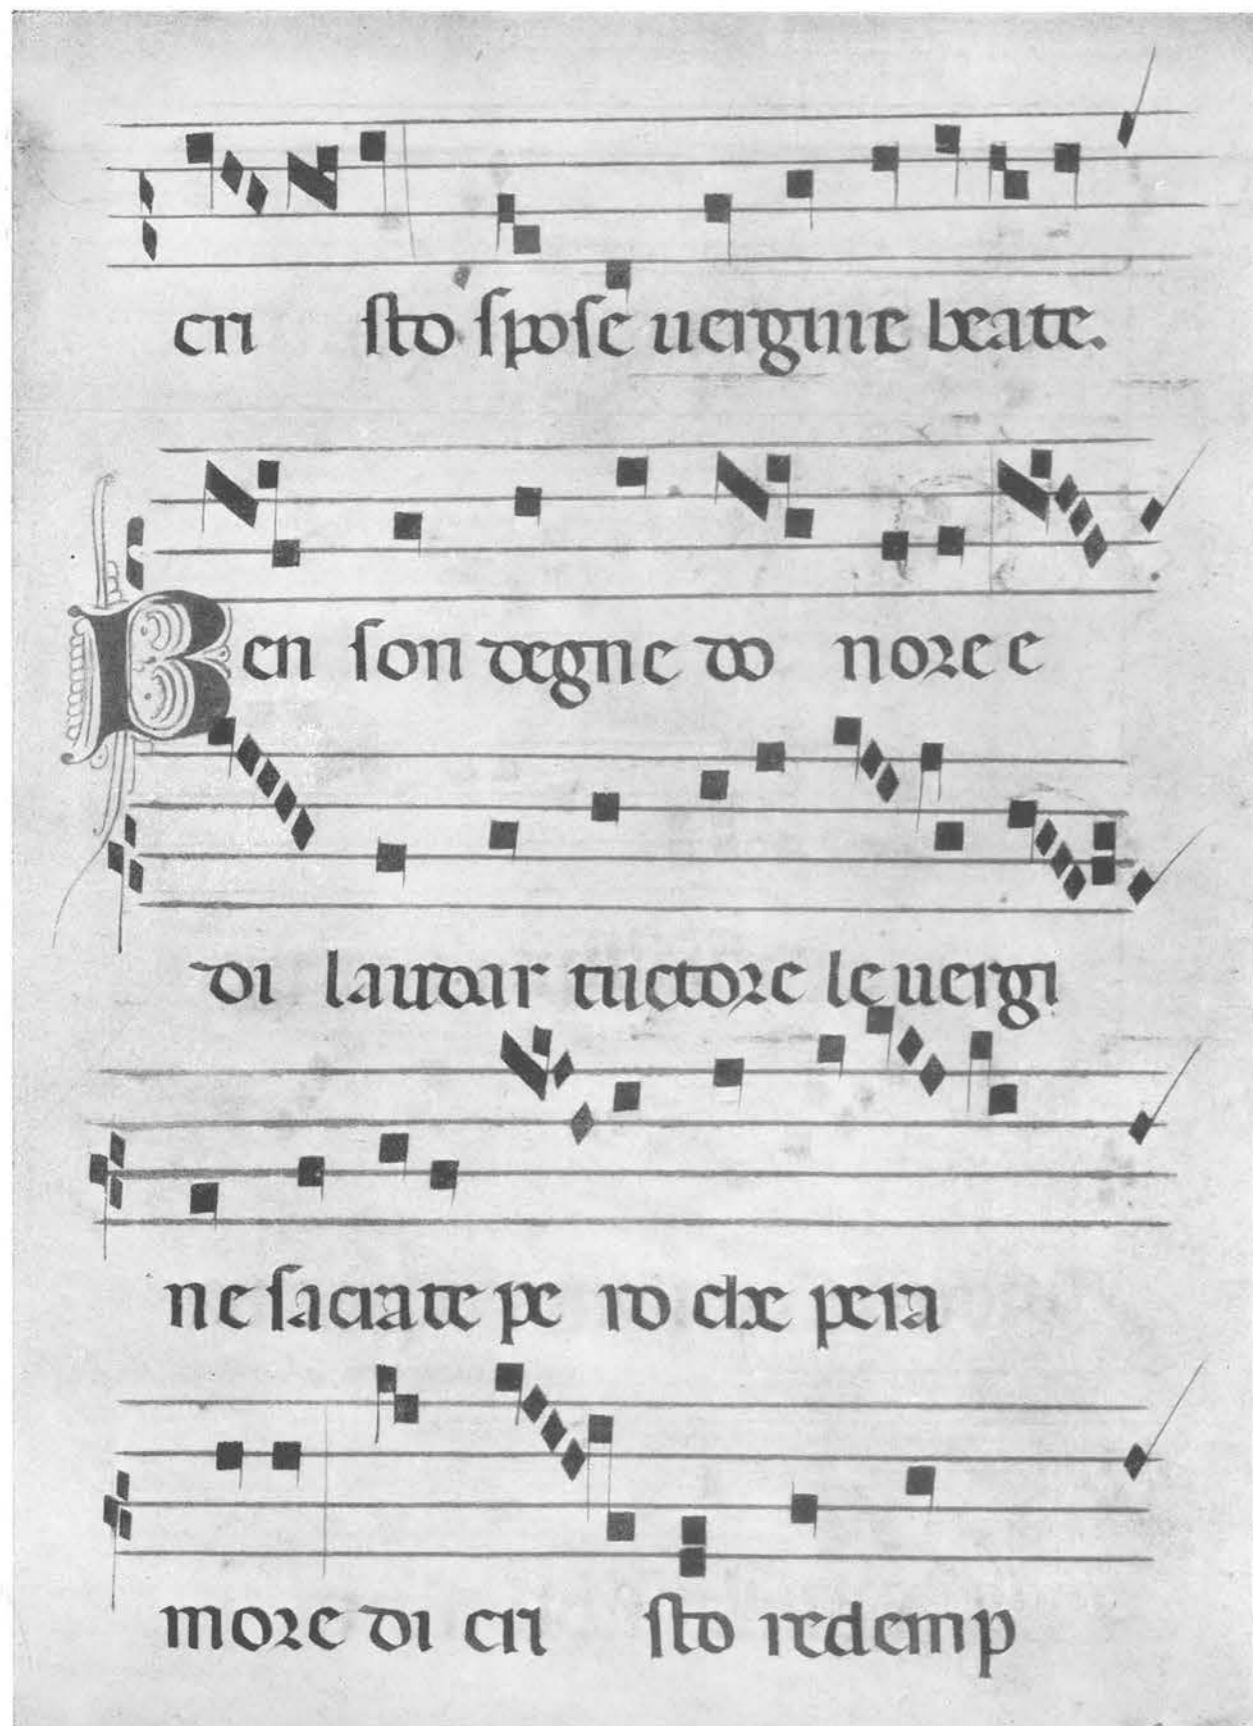 cri sto spose uergine beate.
Ben son degne do nore e
di laudar tuctore le uergi
ne saciate pe ro che per a
more di cri sto redemp